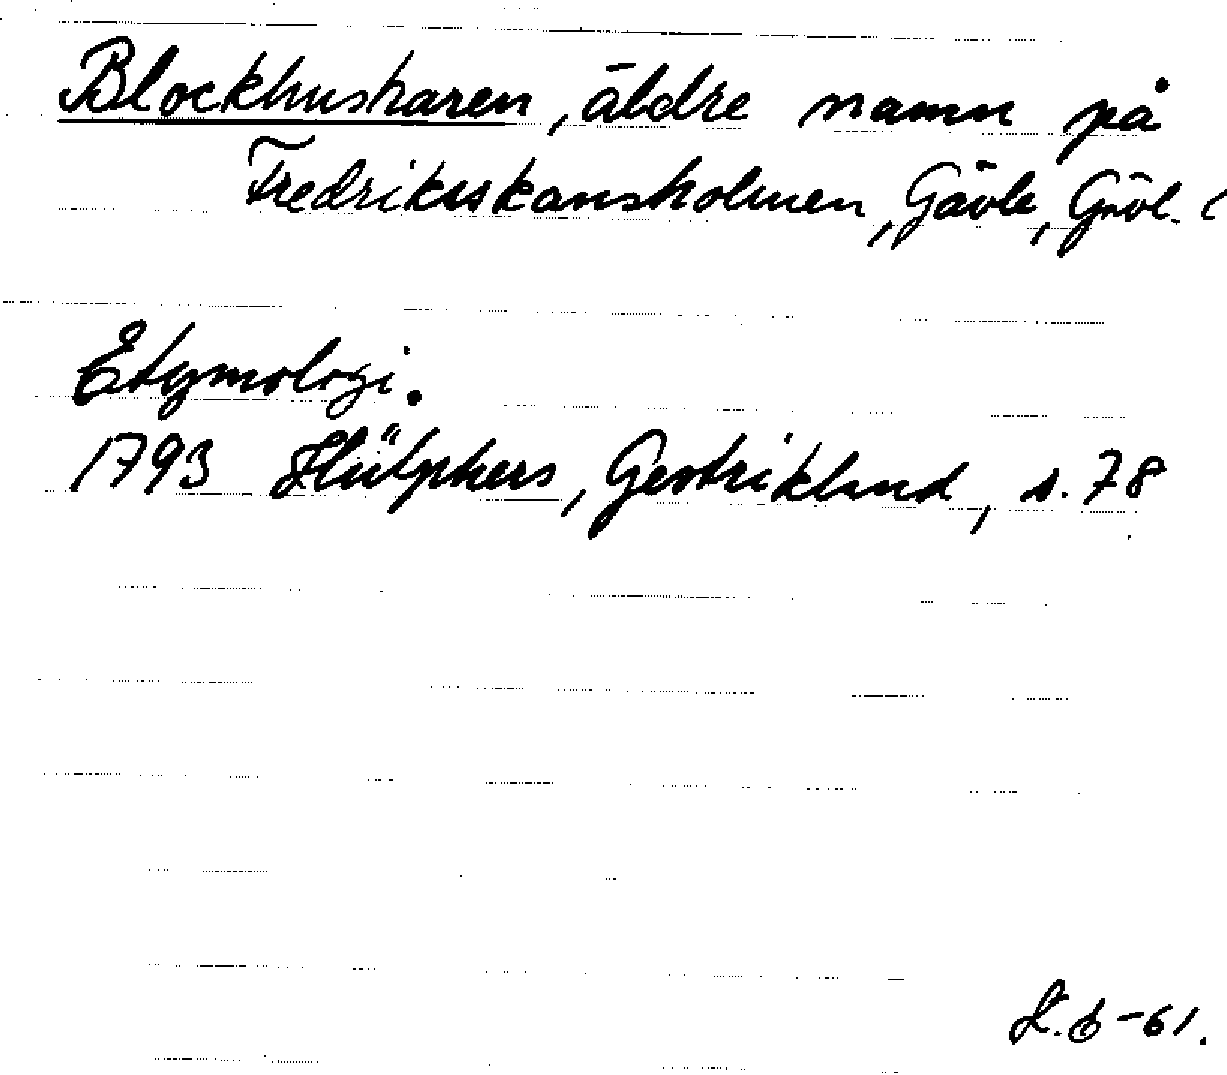 Blockhusharen, äldre namn på
Fredriksskansholmen, Gävle, Gävl. l
Etymologi.
1793 Hülphers, Gestrikland, s. 78
H. b -61.